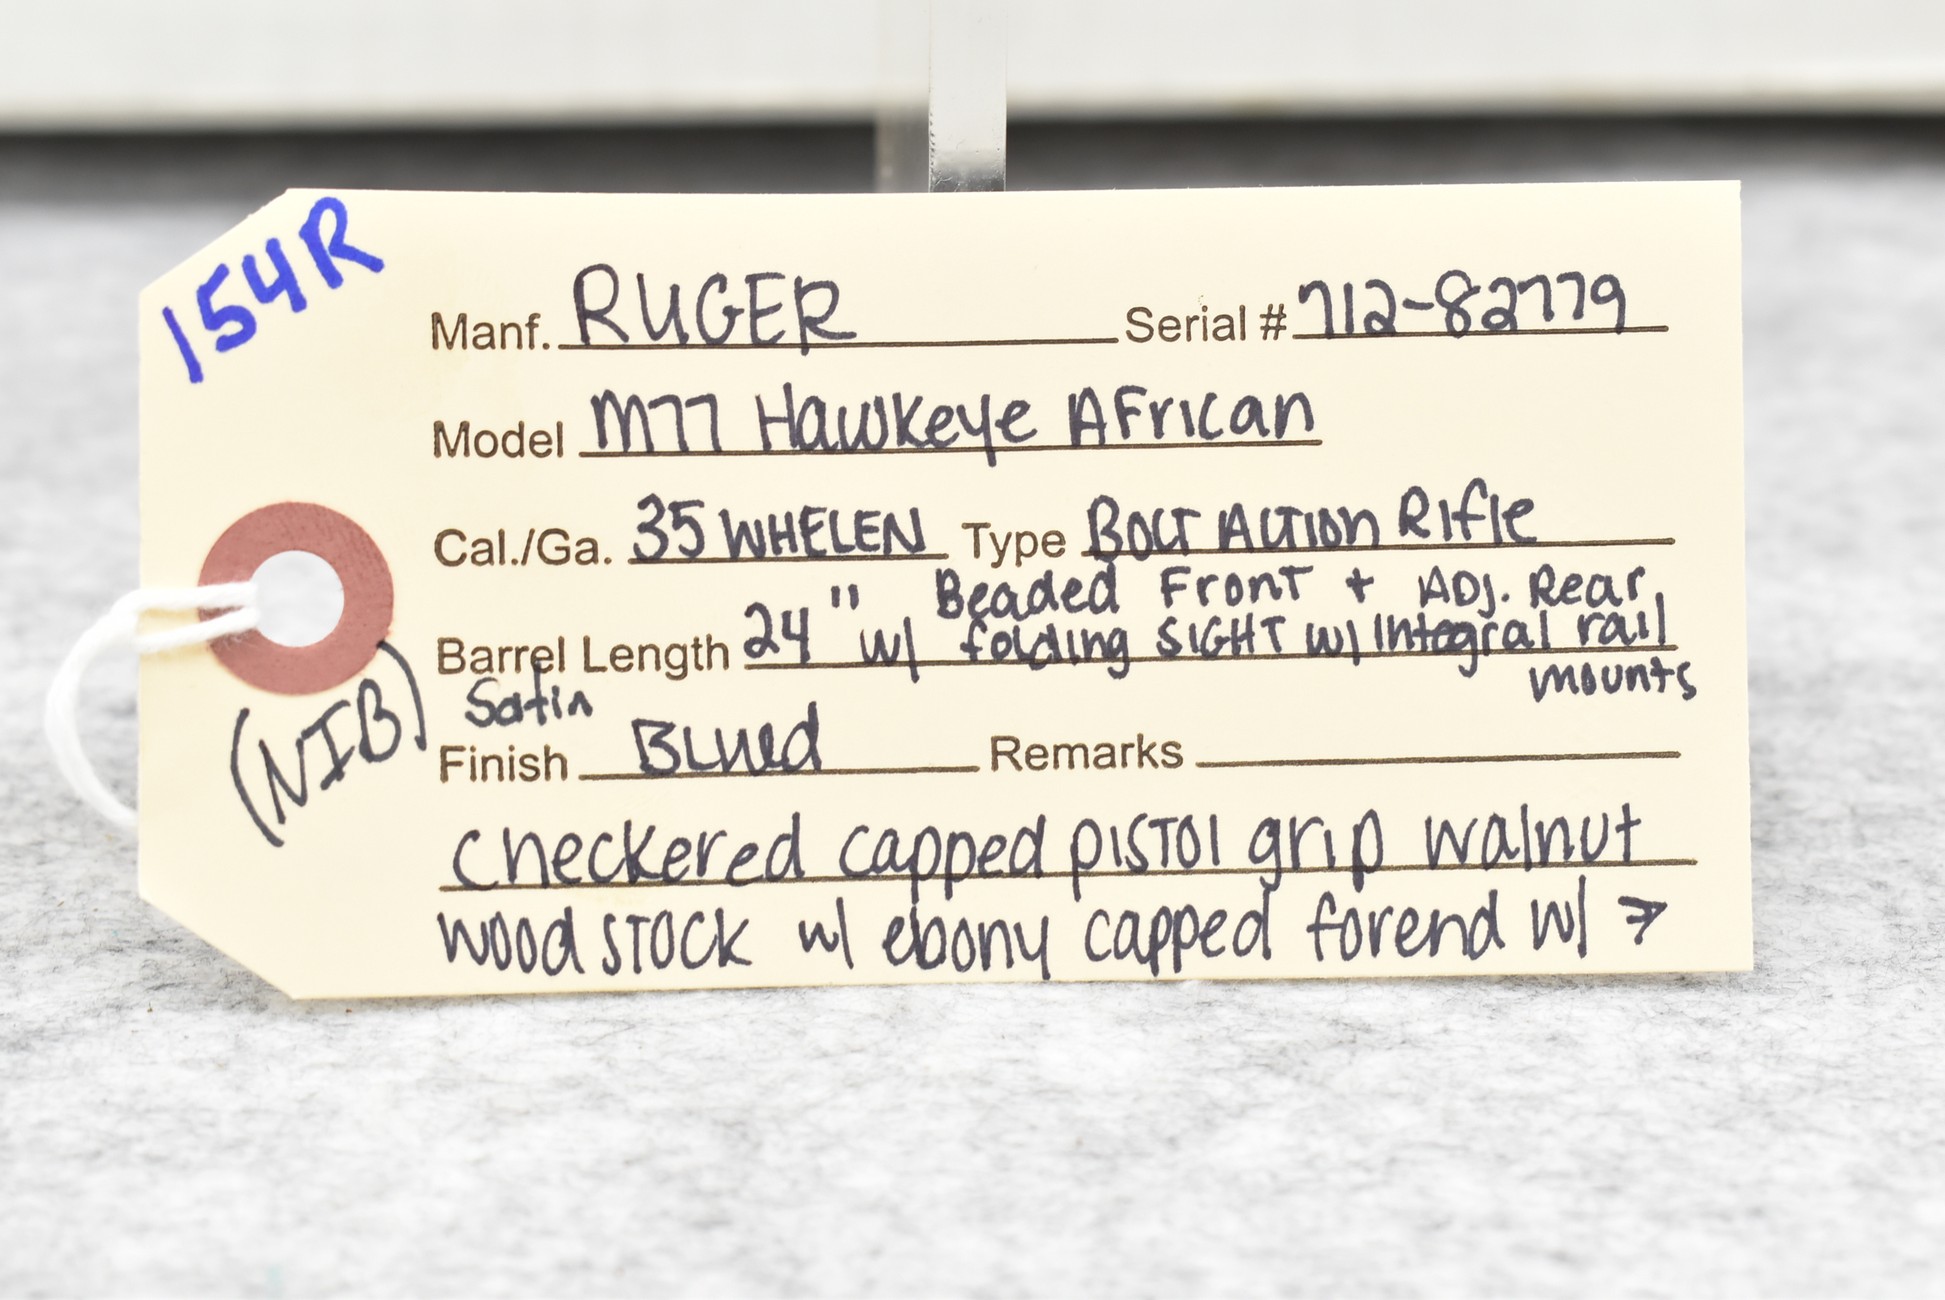 154R
Manf. RUGER Serial # 712-82779
Model M77 Hawkeye African
Cal./Ga. 35 WHELEN Type Bolt Action Rifle
Beaded Front + ADJ. Rear
Barrel Length 24" w/ folding SIGHT w/ Integral rail
mounts
(NIB)
Satin
Finish Blued Remarks
checkered capped pistol grip walnut
wood stock w/ ebony capped forend w/ →